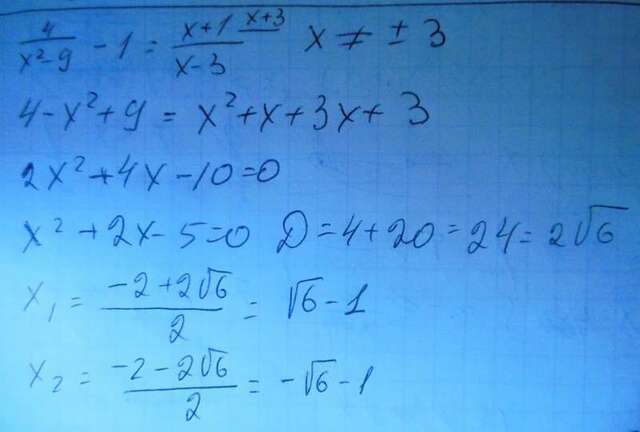 4/(x²-9) - 1 = (x+1)/(x-3) x+3 x ≠ ± 3
4-x²+9 = x²+x+3x+3
2x²+4x-10=0
x²+2x-5=0 D=4+20=24=2√6
x₁ = (-2+2√6)/2 = √6-1
x₂ = (-2-2√6)/2 = -√6-1